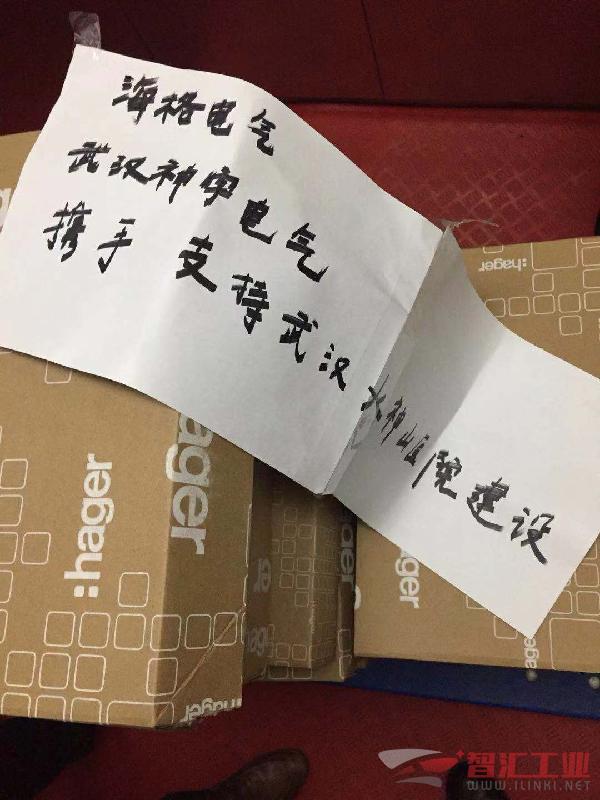 海格电气
武汉神宇电气
携手 支持武汉火神山医院建设
:hager
:hager
hager
:hager
:hager
:hager
智汇工业
WWW.ILINKI.NET